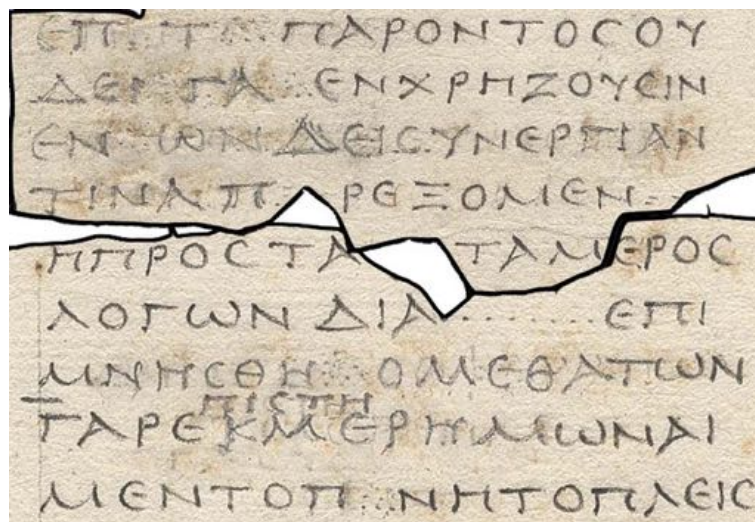 ΕΠ Τ ΠΑΡΟΝΤΟϹΟΥ
ΔΕ ΓΑ ΕΝΧΡΗΖΟΥϹΙΝ
ΕΝ ΩΝ ΔΕΙϹΥΝΕΡΓΙΑΝ
ΤΙΝΑΠ ΡΕΞΟΜΕΝ
ΗΠΡΟϹΤΑ ΤΑΜΕΡΟϹ
ΛΟΓΩΝ ΔΙΑ ΕΠΙ
ΜΝΗϹΘΗ ΟΜΕΘΑΤΩΝ
ΠΙϹΤΗ
ΓΑΡΕΚΜΕΡΗΜΩΝΑΙ
ΜΕΝΤΟΠ ΝΗΤΟΠΛΕΙϹ